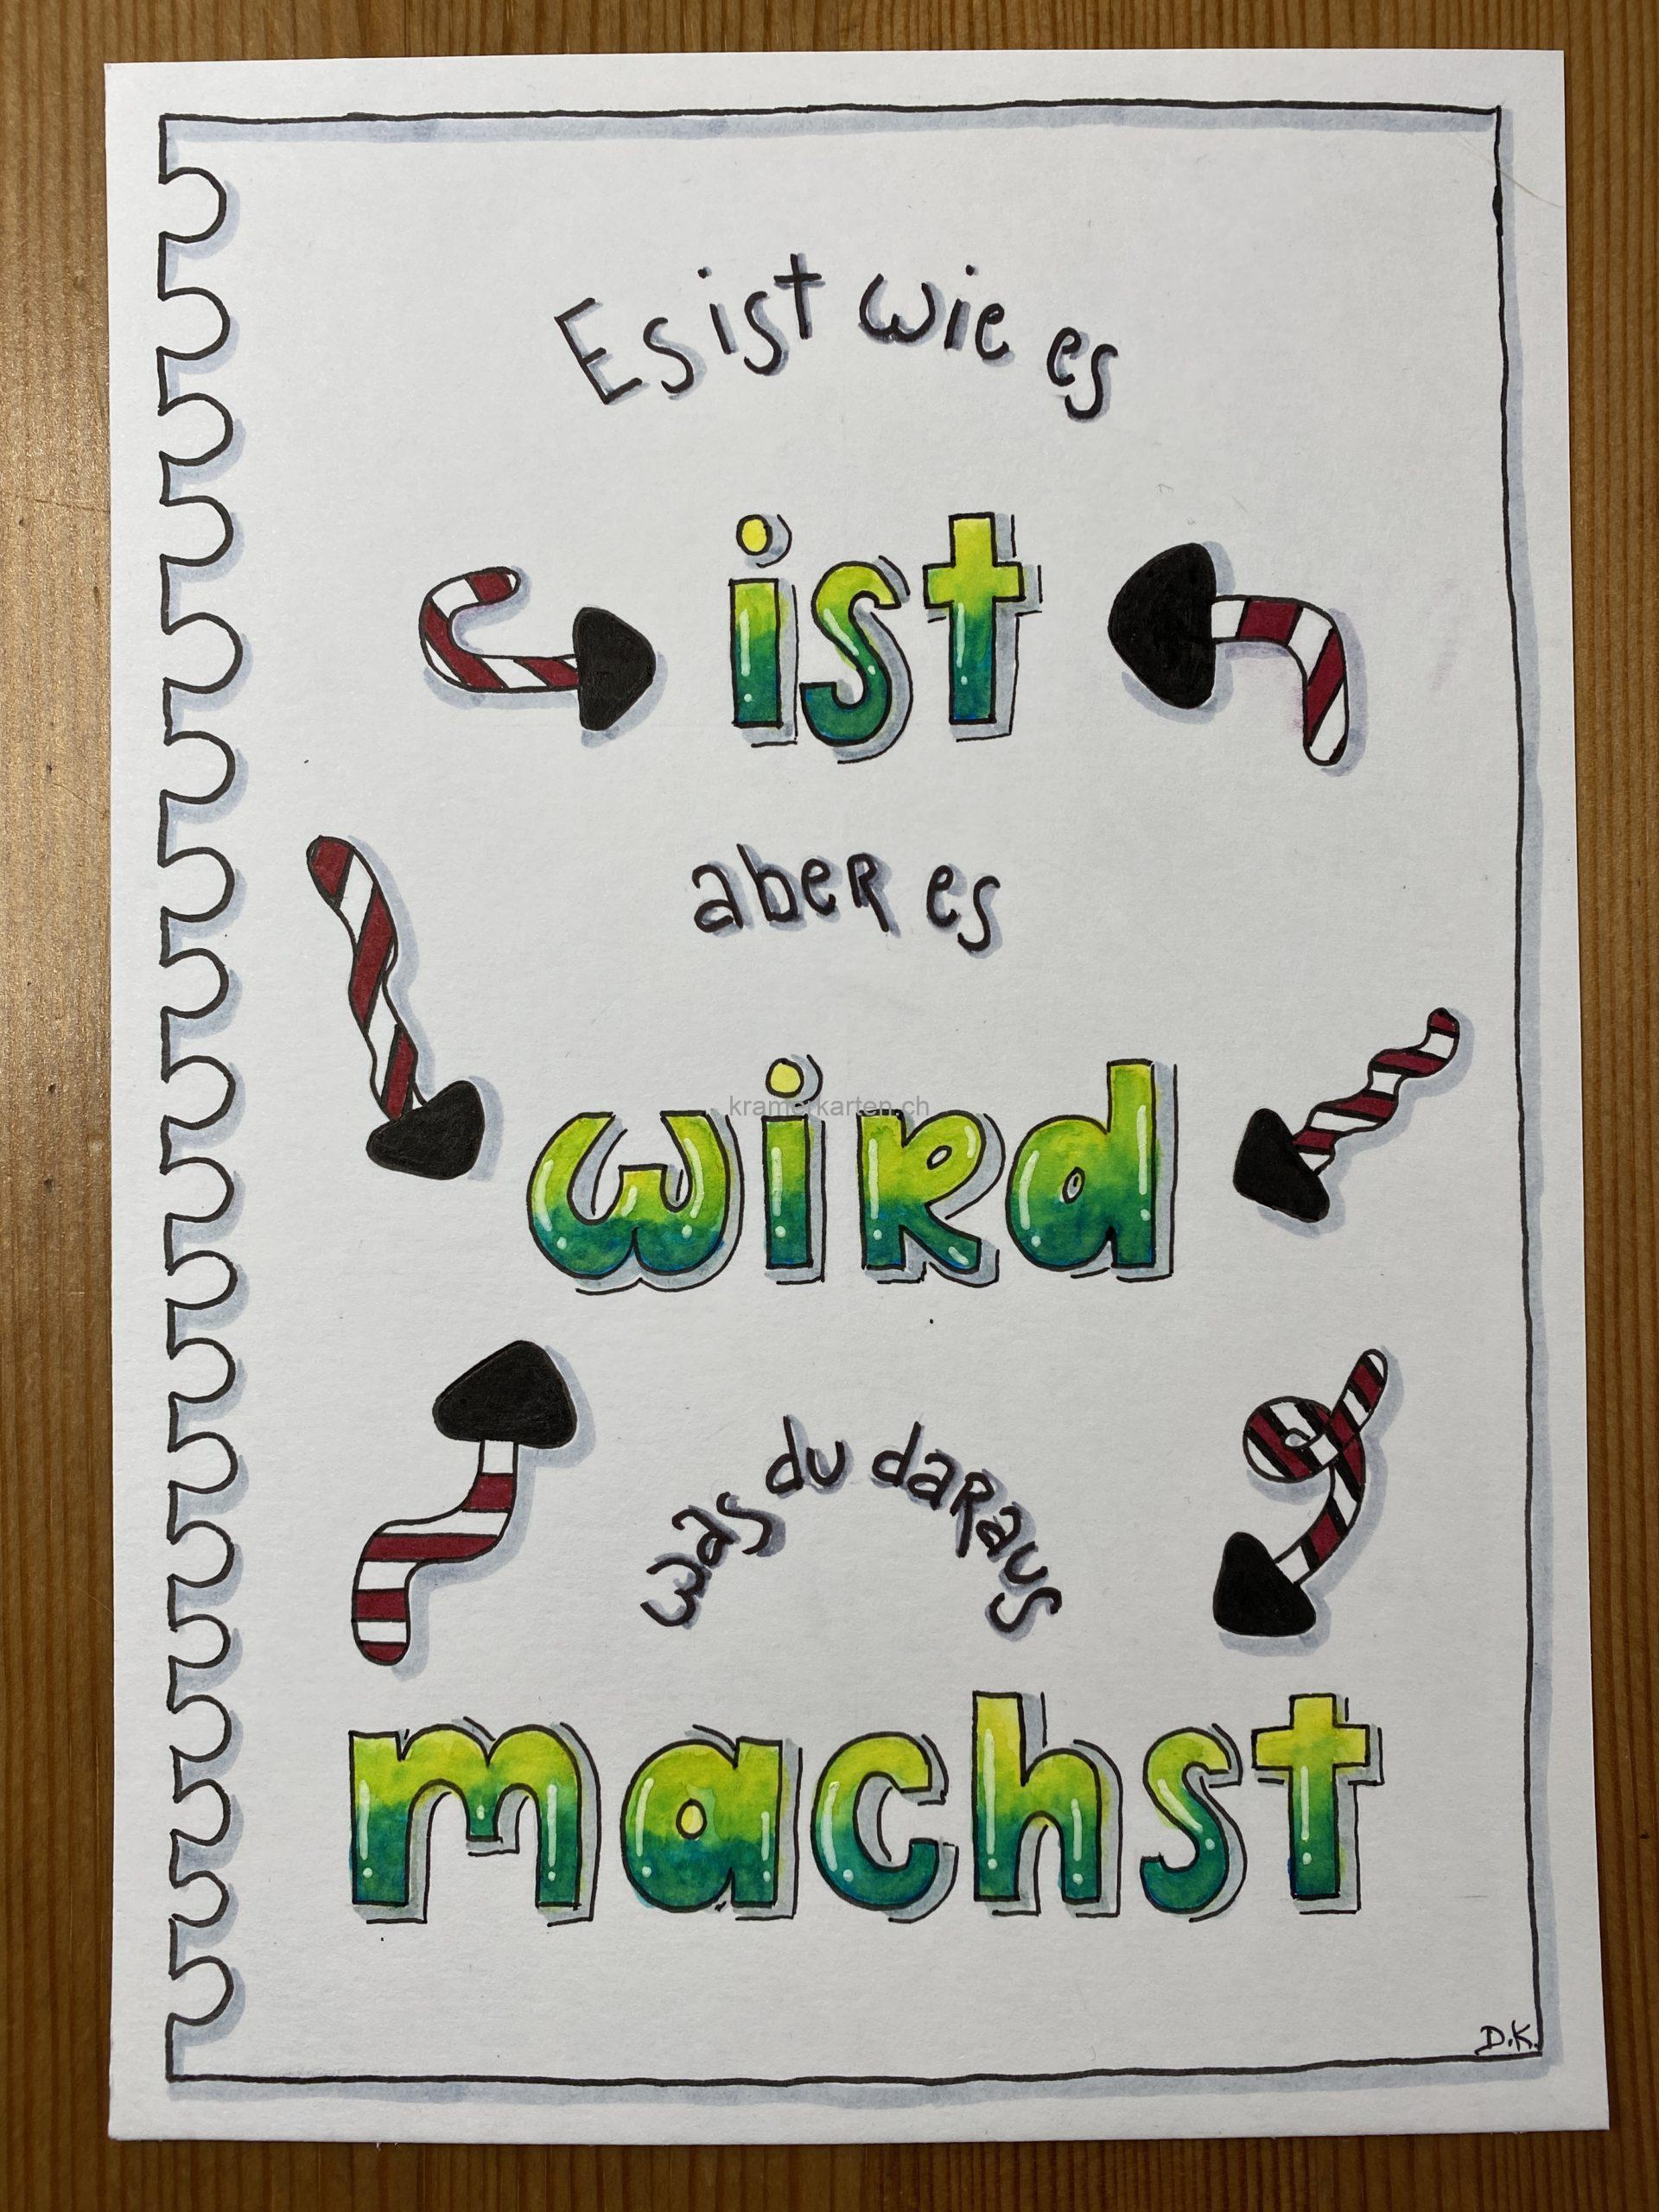 Es ist wie es
ist
aber es
wird
kramerkarten.ch
was du daraus
machst
D.K.